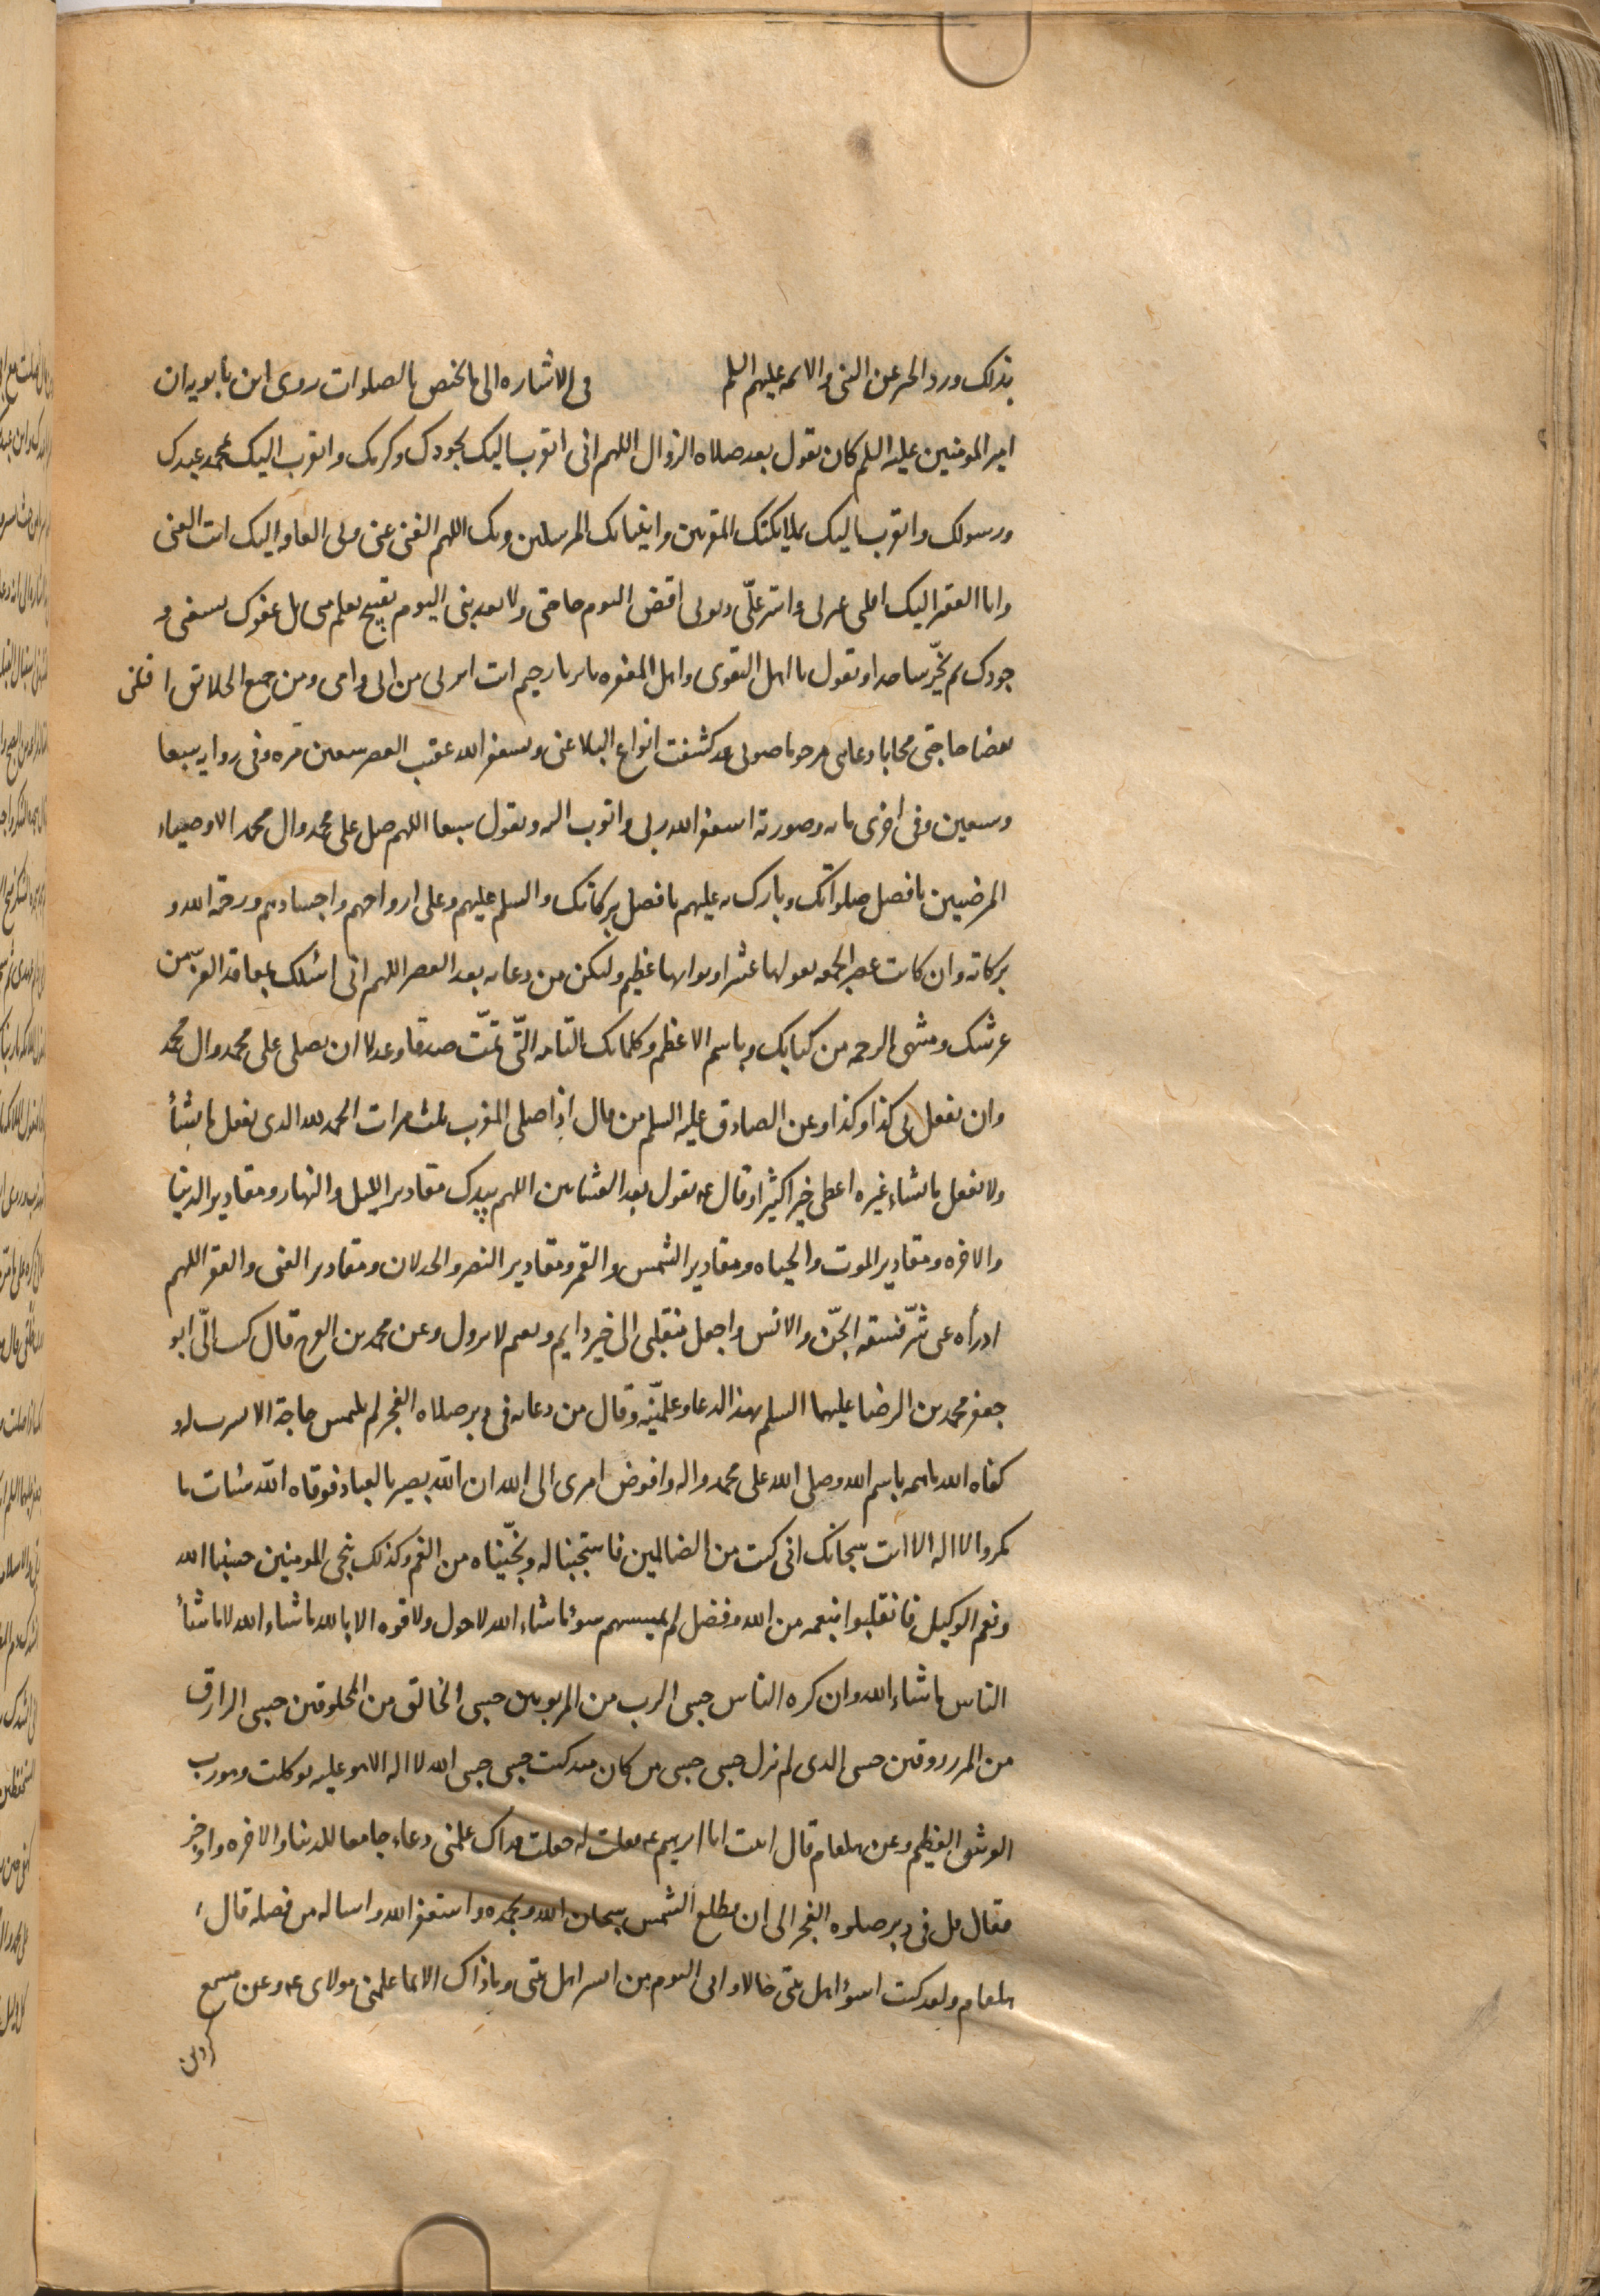 بذلک ورد الخبر عن النبی والائمه علیهم السلم فی الاشاره الی ما یختص بالصلوات روی ابن بابویه ان
امیر المومنین علیه السلم کان یقول بعد صلاه الزوال اللهم انی اتقرب الیک بجودک وکرمک واتقرب الیک بمحمد عبدک
ورسولک واتقرب الیک بملایکتک المقربین وانبیائک المرسلین وبک اللهم الغنی عنی وبی الفاقه الیک انت الغنی
وانا الفقیر الیک اقلنی عثرتی واستر علیّ ذنوبی اقض الیوم حاجتی ولا تعذبنی الیوم بقبیح تعلم منی بل عفوک یسعنی و
جودک ثم یخرّ ساجدا ویقول یا اهل التقوی واهل المغفره یا بر یا رحیم انت ابر بی من ابی وامی ومن جمیع الخلایق اقلبنی
بقضا حاجتی مجابا دعای مرحوما صوتی قد کشفت انواع البلا عنی ویستغفر الله عقیب العصر سبعین مره وفی روایه سبعا
وسبعین وفی اخری مایه وصورته استغفر الله ربی واتوب الیه ویقول سبعا اللهم صل علی محمد وال محمد الاوصیاء
المرضیین بافضل صلواتک وبارک علیهم بافضل برکاتک والسلم علیهم وعلی ارواحهم واجسادهم ورحمة الله و
برکاته وان کانت عصر الجمعه یقولها عشرا وثوابها عظیم ولیکن من دعائه بعد العصر اللهم انی اسئلک بمعاقد العز من
عرشک ومنتهی الرحمه من کتابک وباسم الاعظم وکلماتک التامه التّی تمّت صدقا وعدلا ان تصلی علی محمد وال محمد
وان تفعل بی کذا وکذا وعن الصادق علیه السلم من قال اذا صلی المغرب ثلث مرات الحمد لله الذی یفعل ما یشأ
ولا یفعل ما یشاء غیره اعطی خیرا کثیرا وقال ع یقول بعد العشایین اللهم بیدک مقادیر اللیل والنهار ومقادیر الدنیا
والاخره ومقادیر الموت والحیاه ومقادیر الشمس والقمر ومقادیر النصر والخذلان ومقادیر الغنی والفقر اللهم
ادرأه عنی شرّ فسقه الجنّ والانس واجعل منقلبی الی خیر دایم ونعیم لا یزول وعن محمد بن الفرج قال کتب الّی ابو
جعفر محمد بن الرضا علیهما السلم بهذا الدعا وعلمّنیه وقال من دعا به فی دبر صلاه الفجر لم یلتمس حاجة الا تیسرت له و
کفاه الله ما اهمه باسم الله وصلی الله علی محمد واله وافوض امری الی الله ان الله بصیر بالعباد فوقاه الله سیئات ما
مکروا لا اله الا انت سبحانک انی کنت من الظالمین فاستجبنا له ونجّیناه من الغم وکذلک ننجی المومنین حسبنا الله
ونعم الوکیل فانقلبوا بنعمه من الله وفضل لم یمسسهم سوء ما شاء الله لا حول ولا قوه الا بالله ما شاء الله لا ما شأ
الناس ما شاء الله وان کره الناس حسبی الرب من المربوبین حسبی الخالق من المخلوقین حسبی الرازق
من المرزوقین حسبی الذی لم یزل حسبی حسبی من کان منذ کنت حسبی حسبی الله لا اله الا هو علیه توکلت وهو رب
العرش العظیم وعن هلقام قال اتیت ابا ابرهیم ع فقلت له جعلت فداک علمنی دعاء جامعا للدنیا والاخره واوجز
فقال قل فی دبر صلوه الفجر الی ان تطلع الشمس سبحان الله وبحمده واستغفر الله واساله من فضله قال
هلقام ولقد کنت اسوأ اهل بیتی حالا وانی الیوم من ایسر اهل بیتی وما ذاک الا بما علمنی مولای ع وعن مسمع
کردین